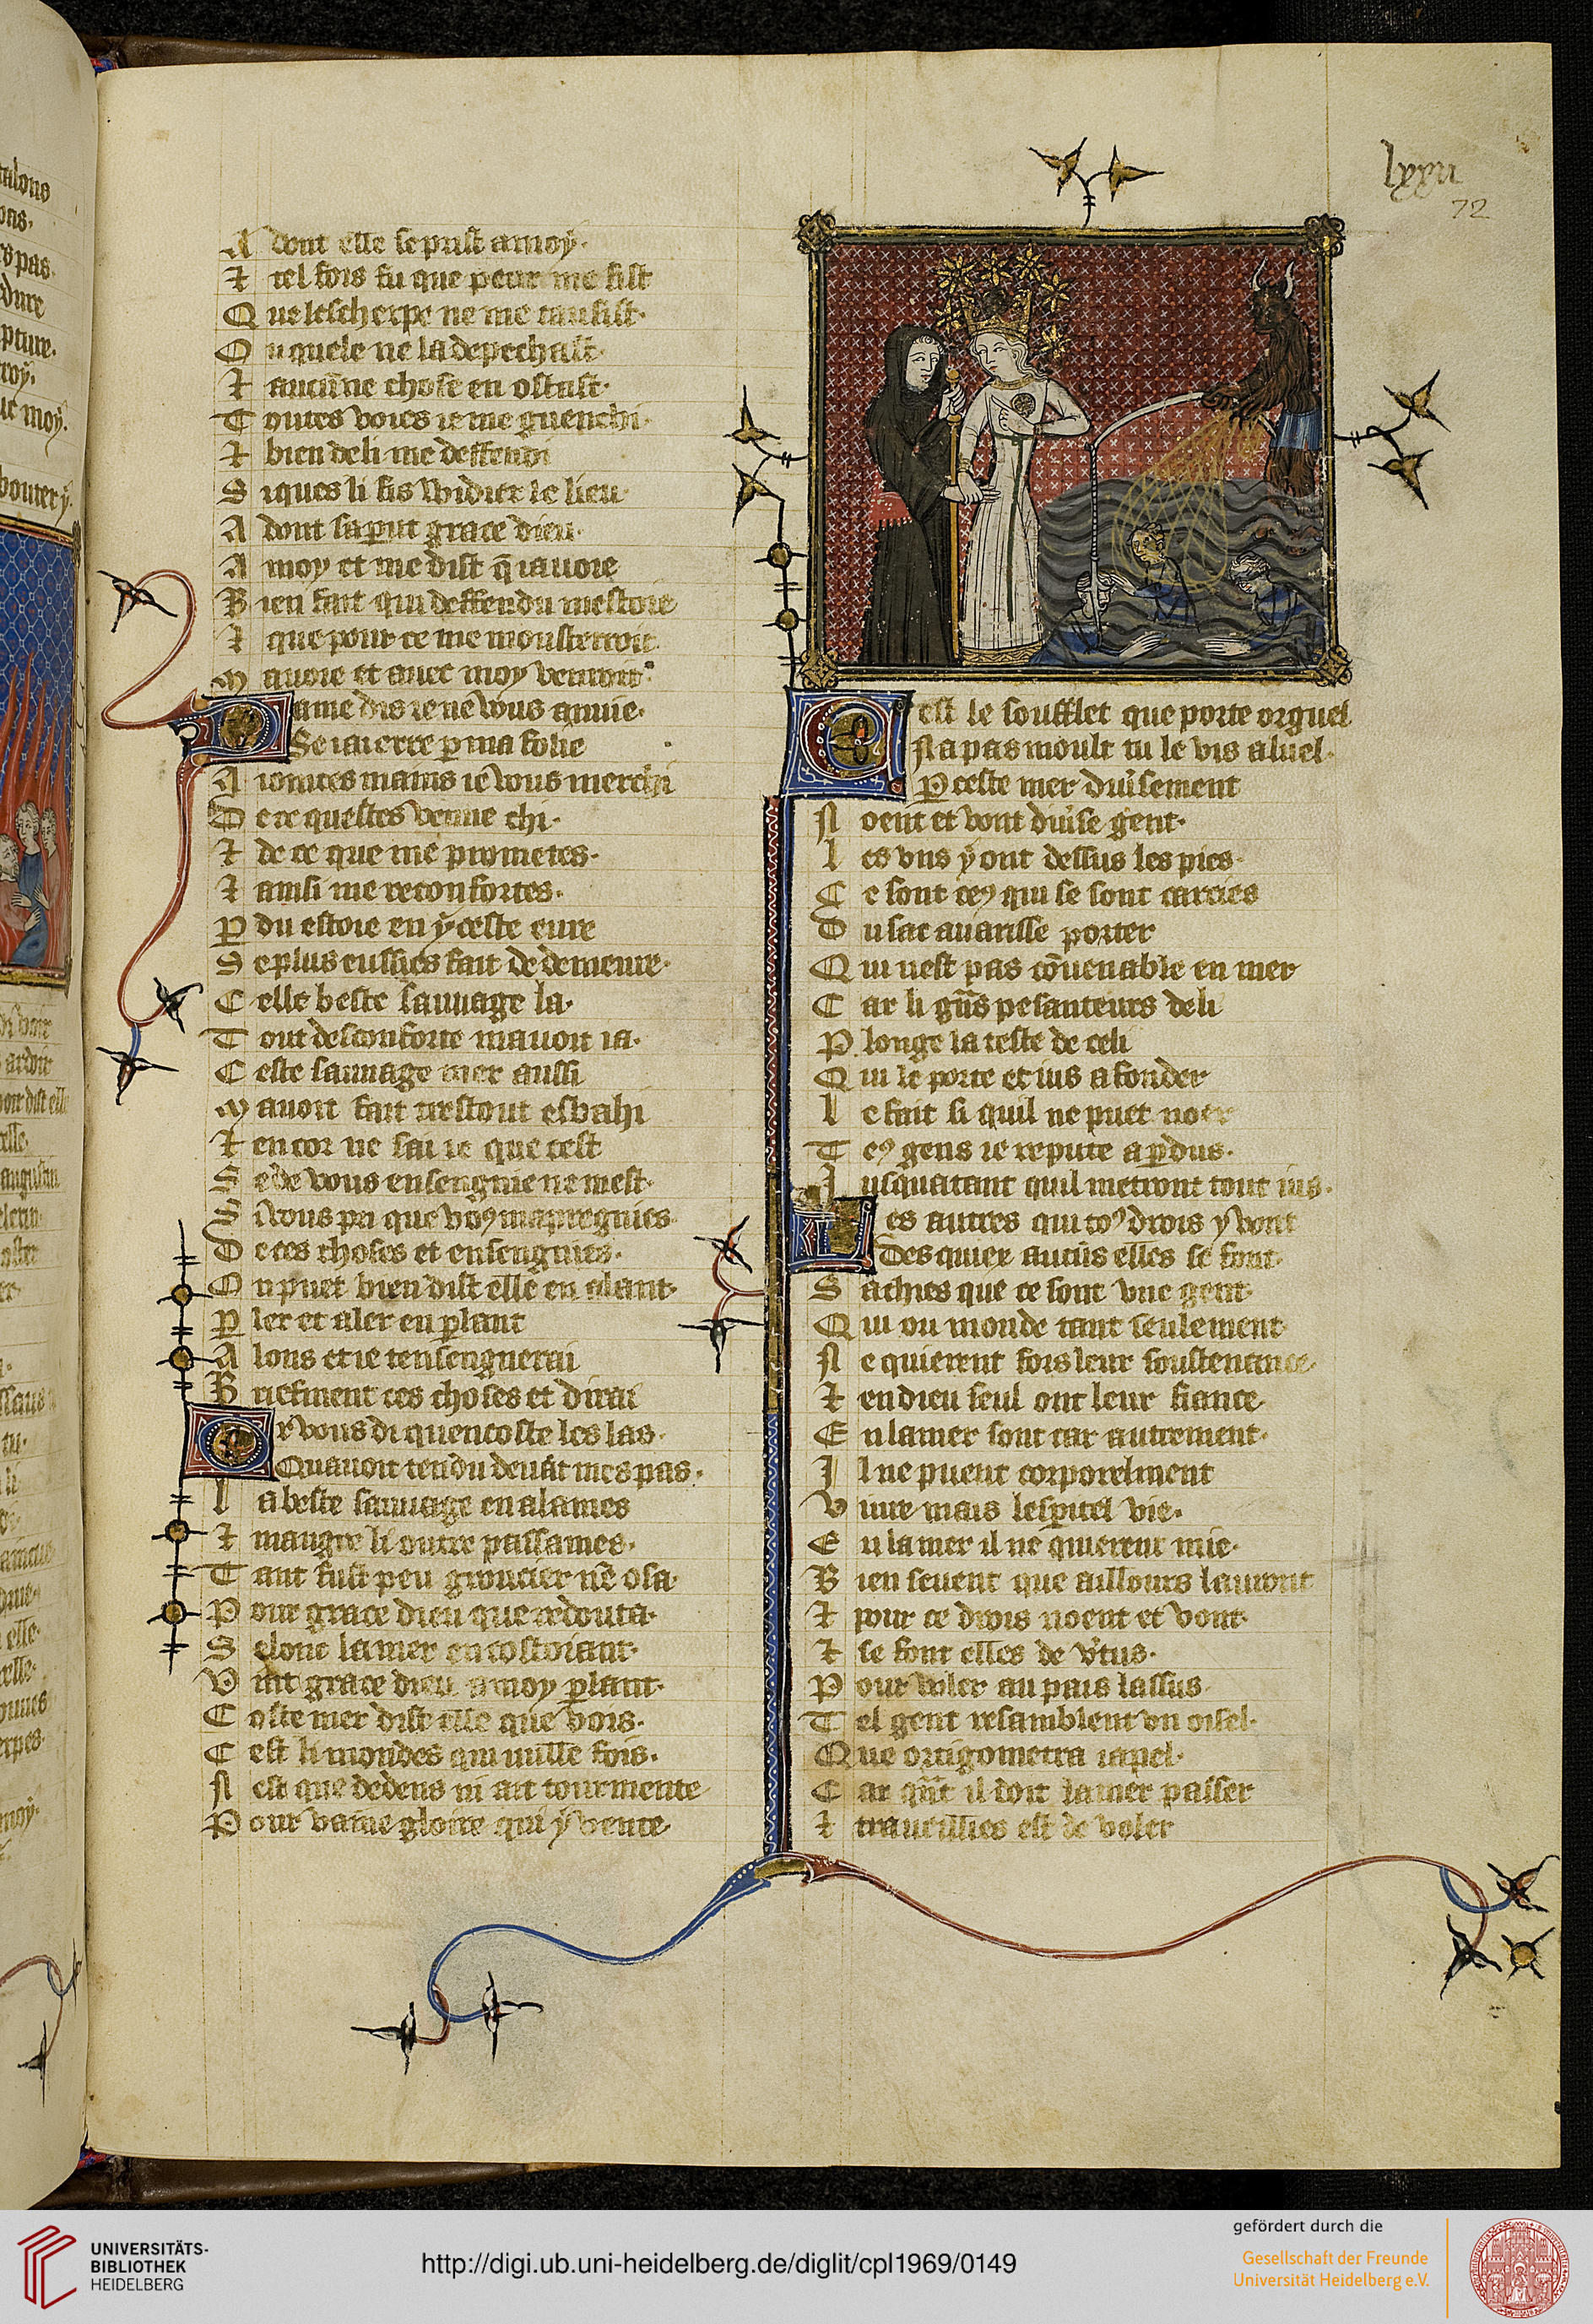 lxxii
72
A dont elle se prist a moy.
Et tel fois fu que peur me fist
Que lescherpe ne me tausist.
Ou quele ne la depechast.
Et aucune chose en ostast.
Toutes voies ie me guenchi.
Et bien de li me deffendi
Si ques li fis widier le lieu.
A dont saput grace dieu.
A moy et me dist q̄ iauoie
Bien fait qui deffendu mestoie
Et que pour ce me mousterroit
M auoie et auec moy venroit.
Dame dis ie ne vous anuie.
Se iai erre p ma folie
A iointes mains ie vous merchi
De re questes venue chi.
Et de ce que me prometes.
Et ainsi me reconfortes.
Pdu estoie en yceste eure
Se plus eussies fait de demeure.
Celle beste sauuage la.
Tout desconforte mauoit ia.
Ceste sauuage mer aussi
Mauoit fait trestout esbahi
Et encor ne sai ie que cest
Se de vous ensengnie ne mest.
Si vous pri que voꝯ mapregnies
De ces choses et ensengnies.
On puet bien dist elle en alant.
Pler et aler en plant
Alons et ie tensengnerai
Briefment ces choses et dirai
Or vous di quencoste les las.
Quauoit tendu deuāt mes pas.
La beste sauuage en alames
Et maugre li outre passames.
Tant fust peu groucier nē osa.
Pour grace dieu que redouta.
Selonc la mer en costoiant.
Vint grace dieu a moy plant.
Ceste mer dist elle que vois.
Cest li mondes qui nulle fois.
Nest que dedens ni ait tourmente
Pour vaine gloire qui y vente.
Cest le soufflet que porte orguel
Na pas moult tu le vis a luel.
P ceste mer diuisement
Noent et vont diuise gent.
Les vns y ont dessus les pies.
Ce sont ceꝯ qui se sont carcies
Du sac auarisse porter
Qui nest pas cōuenable en mer
Car li gns pesanteurs de li
Plonge la teste de celi
Qui le porte et ius afonder
Le fait si quil ne puet noer
Teꝯ gens ie repute a pdus.
Iusqua tant quil metront tout ius.
Les autres qui toꝯ drois y vont
Des quiex aucūs elles se font.
Sachies que ce sont vne gent.
Qui ou monde tant seulement.
Ne quierent fors leur soustenance.
Et en dieu seul ont leur fiance.
En la mer sont car autrement.
Il ne puent corporelment
Viure mais lespituel vie.
En la mer il ne quierent mie.
Bien seuent que aillours lauront
Et pour ce drois noent et vont.
Et se font elles de vtus.
Pour voler au pais lassus.
Tel gent resamblent vn oisel.
Que ortigometra iapel.
Car qñt il doit la mer passer
Et trauessiés est de voler
UNIVERSITÄTS-
BIBLIOTHEK
HEIDELBERG
http://digi.ub.uni-heidelberg.de/diglit/cpl1969/0149
gefördert durch die
Gesellschaft der Freunde
Universität Heidelberg e.V.